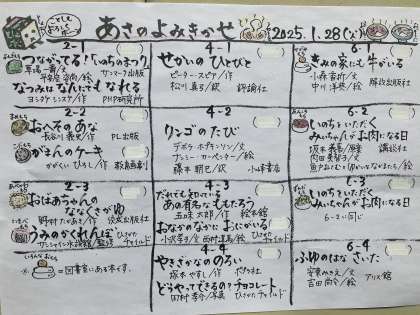 あさのよみきかせ
2025.1.28(火)
2-1
つながってる!いちのまつ
サンマーク出版
なつみはなんにでもなれる
ヨシタケシンスケ/作 PHP研究所
2-2
おへそのあな
長谷川義史/作 BL出版
がまんのケーキ
かがくいひろし/作 教育画劇
2-3
おばあちゃんの
ななくさがゆ
野村たかあき/作 佼成出版社
うみのかくれんぼ
ひさかたチャイルド
=図書室にある本です。
4-1
せかいのひとびと
ピーター・スピアー/作
松川真弓/訳 評論社
4-2
リンゴのたび
デボラ・ホプキンソン/文
ナンシー・カーペンター/絵
藤本朝巳/訳 小峰書店
4-3
だれでも知っている
あの有名なももたろう
五味太郎/作 絵本館
おなかのなかにおにがいる
小沢孝子/文 西村達馬/絵 ひさかたチャイルド
4-4
やきざかなののろい
塚本やすし/作 ポプラ社
どうやってできるの?チョコレート
田村孝介/写真 ひさかたチャイルド
6-1
きみの家にも牛がいる
小森香折/文
中川洋典/絵 解放出版社
6-2
いのちをいただく
みいちゃんがお肉になる日
坂本義喜/原案 講談社
内田美智子/文
魚戸おさむとゆかいななかまたち/絵
6-3
いのちをいただく
みいちゃんがお肉になる日
6-2に同じ
6-4
ふゆのはなさいた
安東みきえ/文 アリス館
吉田尚令/絵